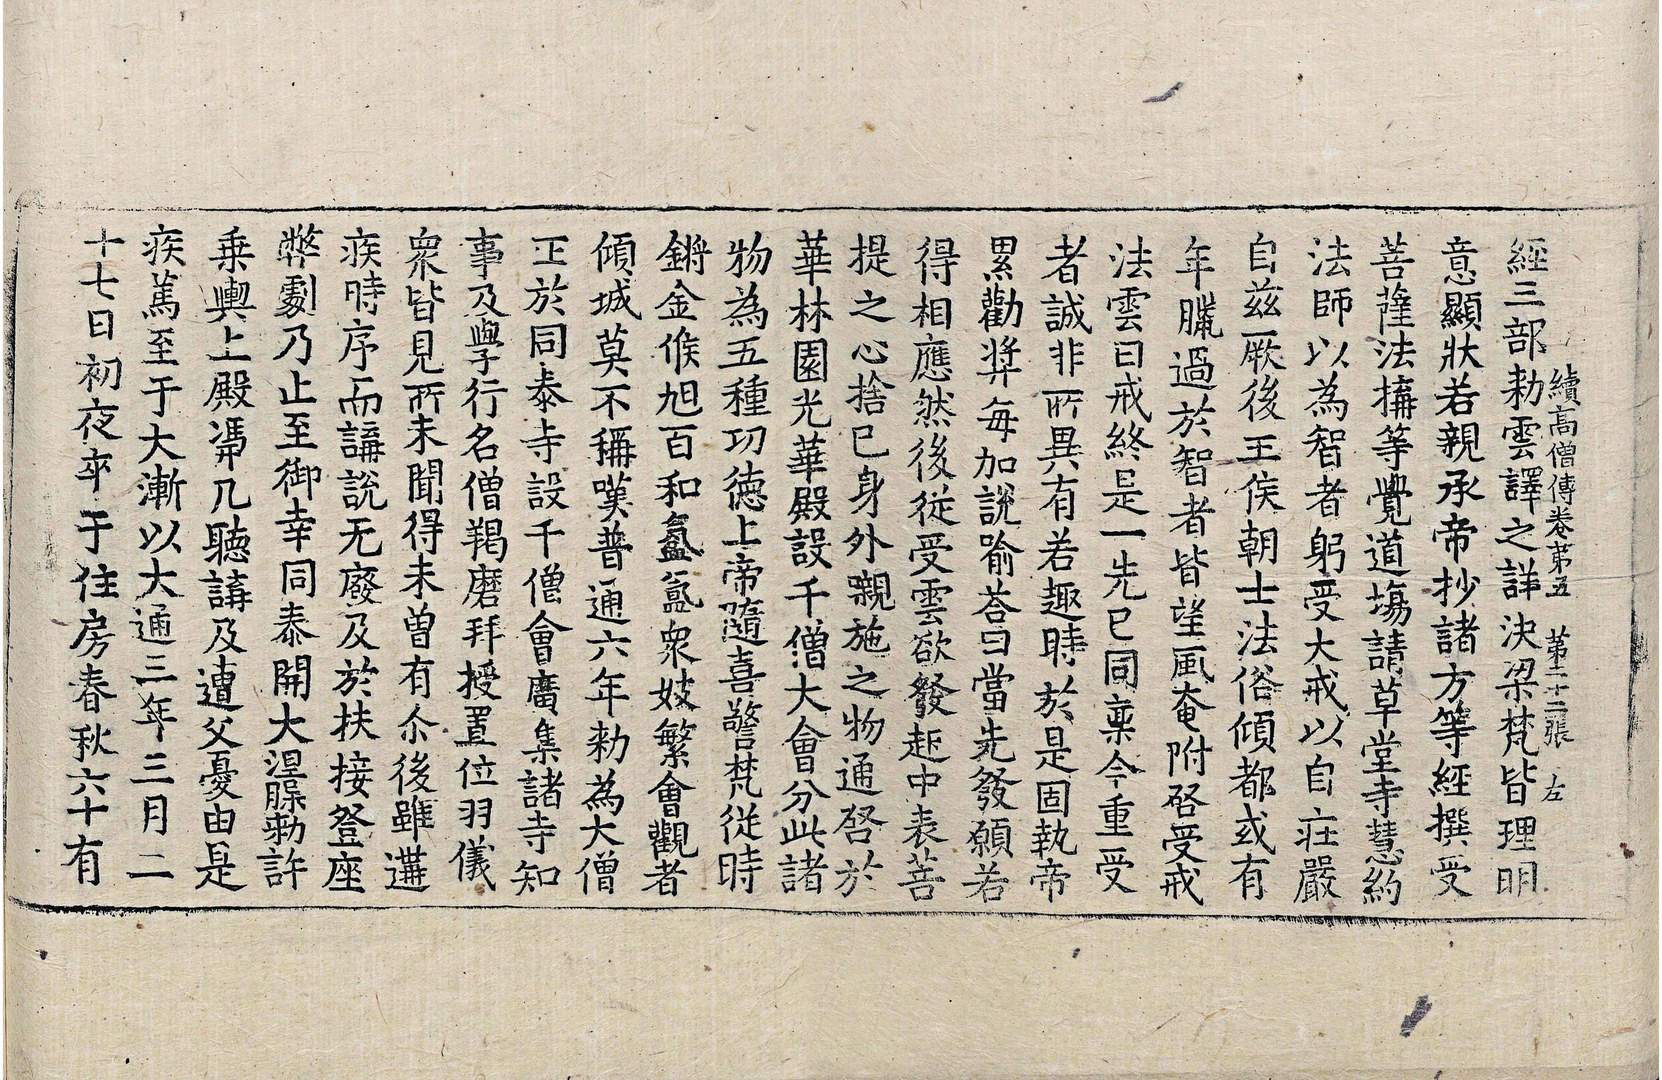 續高僧傳卷第五　第二十二張　左
經三部勑雲譯之詳決梁梵皆理明
意顯狀若親承帝抄諸方等經撰受
菩薩法搆等覺道場請草堂寺慧約
法師以為智者躬受大戒以自莊嚴
自茲厥後王侯朝士法俗傾都或有
年臘過於智者皆望風奄附啓受戒
法雲曰戒終是一先已同稟今重受
者誠非所異有若趣時於是固執帝
累勸奬每加說喻荅曰當先發願若
得相應然後從受雲欲發起中表菩
提之心捨己身外嚫施之物通啓於
華林園光華殿設千僧大會分此諸
物為五種功德上帝隨喜警梵從時
鏘金候旭百和氳氳眾妓繁會觀者
傾城莫不稱嘆普通六年勑為大僧
正於同泰寺設千僧會廣集諸寺知
事及學行名僧羯磨拜授置位羽儀
眾皆見所未聞得未曾有尒後雖遘
疾時序而講說无廢及於扶接登座
弊劇乃止至御幸同泰開大涅槃勑許
乗輿上殿馮几聽講及遭父憂由是
疾篤至于大漸以大通三年三月二
十七日初夜卒于住房春秋六十有